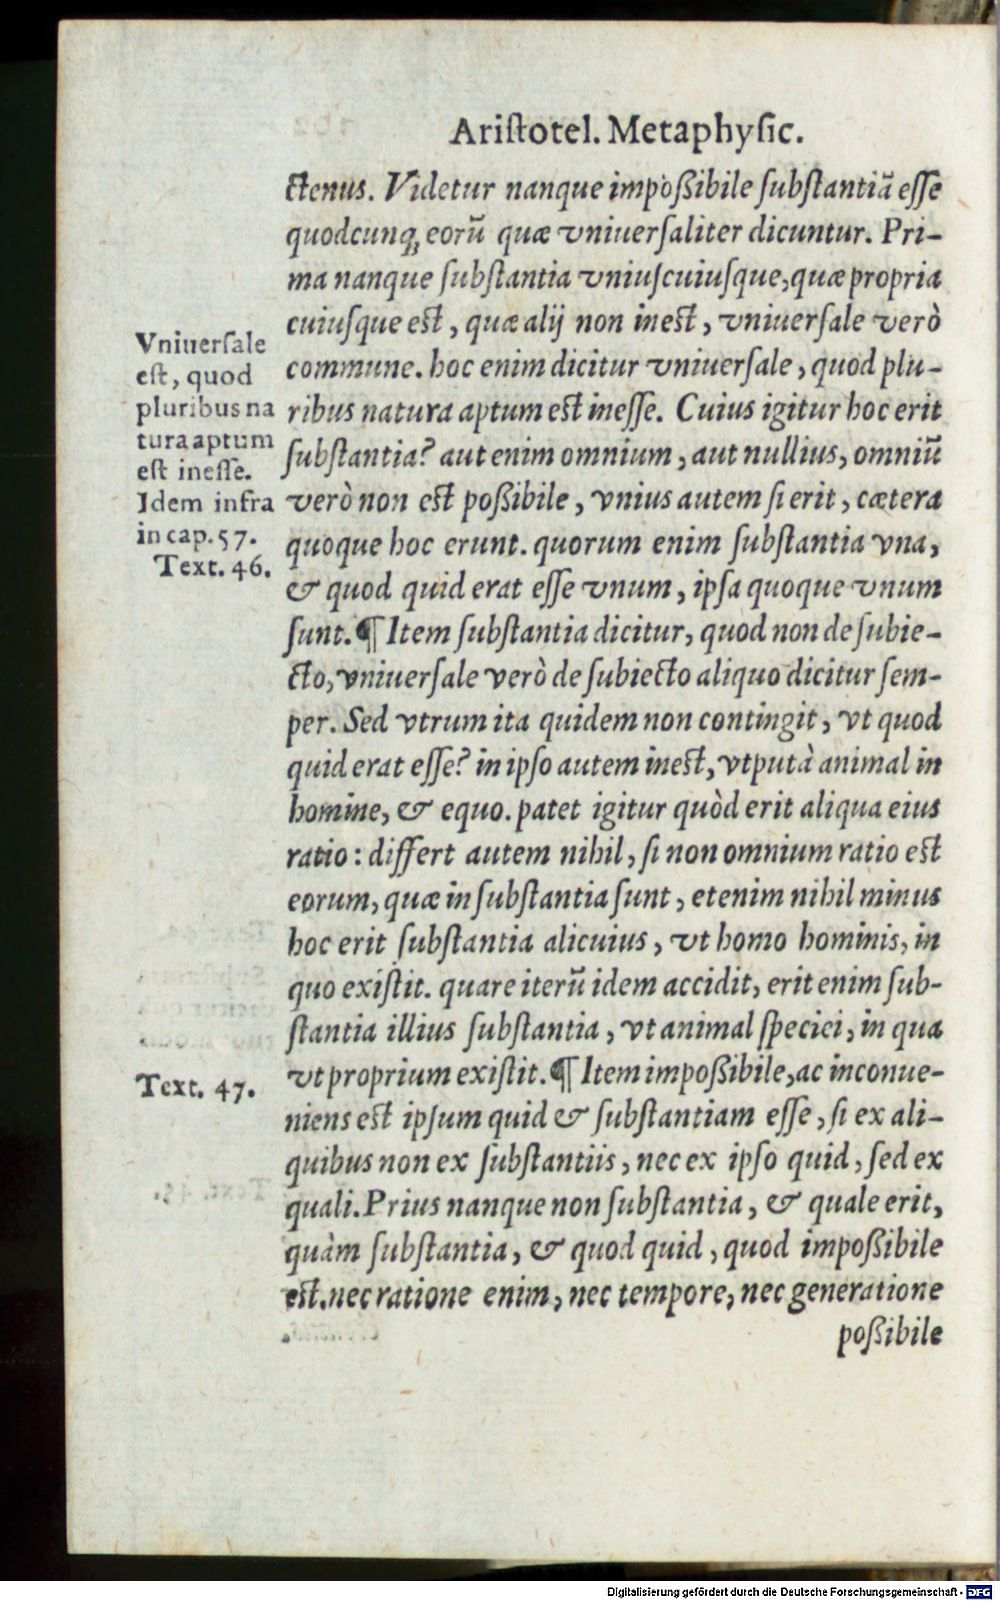 Ariſtotel. Metaphyſic.
ctenus. Videtur nanque impoßibile ſubſtantiã eſſe
quodcunq; eorũ quæ vniuerſaliter dicuntur. Pri-
ma nanque ſubſtantia vniuſcuiuſque, quæ propria
cuiuſque eſt, quæ alij non ineſt, vniuerſale verò
commune. hoc enim dicitur vniuerſale, quod plu-
ribus natura aptum eſt ineſſe. Cuius igitur hoc erit
ſubſtantia? aut enim omnium, aut nullius, omniũ
verò non eſt poßibile, vnius autem ſi erit, cætera
quoque hoc erunt. quorum enim ſubſtantia vna,
& quod quid erat eſſe vnum, ipſa quoque vnum
ſunt. ¶ Item ſubſtantia dicitur, quod non de ſubie-
cto, vniuerſale verò de ſubiecto aliquo dicitur ſem-
per. Sed vtrum ita quidem non contingit, vt quod
quid erat eſſe? in ipſo autem ineſt, vtputà animal in
homine, & equo. patet igitur quòd erit aliqua eius
ratio: differt autem nihil, ſi non omnium ratio eſt
eorum, quæ in ſubſtantia ſunt, etenim nihil minus
hoc erit ſubſtantia alicuius, vt homo hominis, in
quo exiſtit. quare iterũ idem accidit, erit enim ſub-
ſtantia illius ſubſtantia, vt animal ſpeciei, in qua
vt proprium exiſtit. ¶ Item impoßibile, ac inconue-
niens eſt ipſum quid & ſubſtantiam eſſe, ſi ex ali-
quibus non ex ſubſtantiis, nec ex ipſo quid, ſed ex
quali. Prius nanque non ſubſtantia, & quale erit,
quàm ſubſtantia, & quod quid, quod impoßibile
eſt. nec ratione enim, nec tempore, nec generatione
poßibile
Vniuerſale
eſt, quod
pluribus na
tura aptum
eſt ineſſe.
Idem infra
in cap. 57.
Text. 46.
Text. 47.
Digitalisierung gefördert durch die Deutsche Forschungsgemeinschaft - DFG